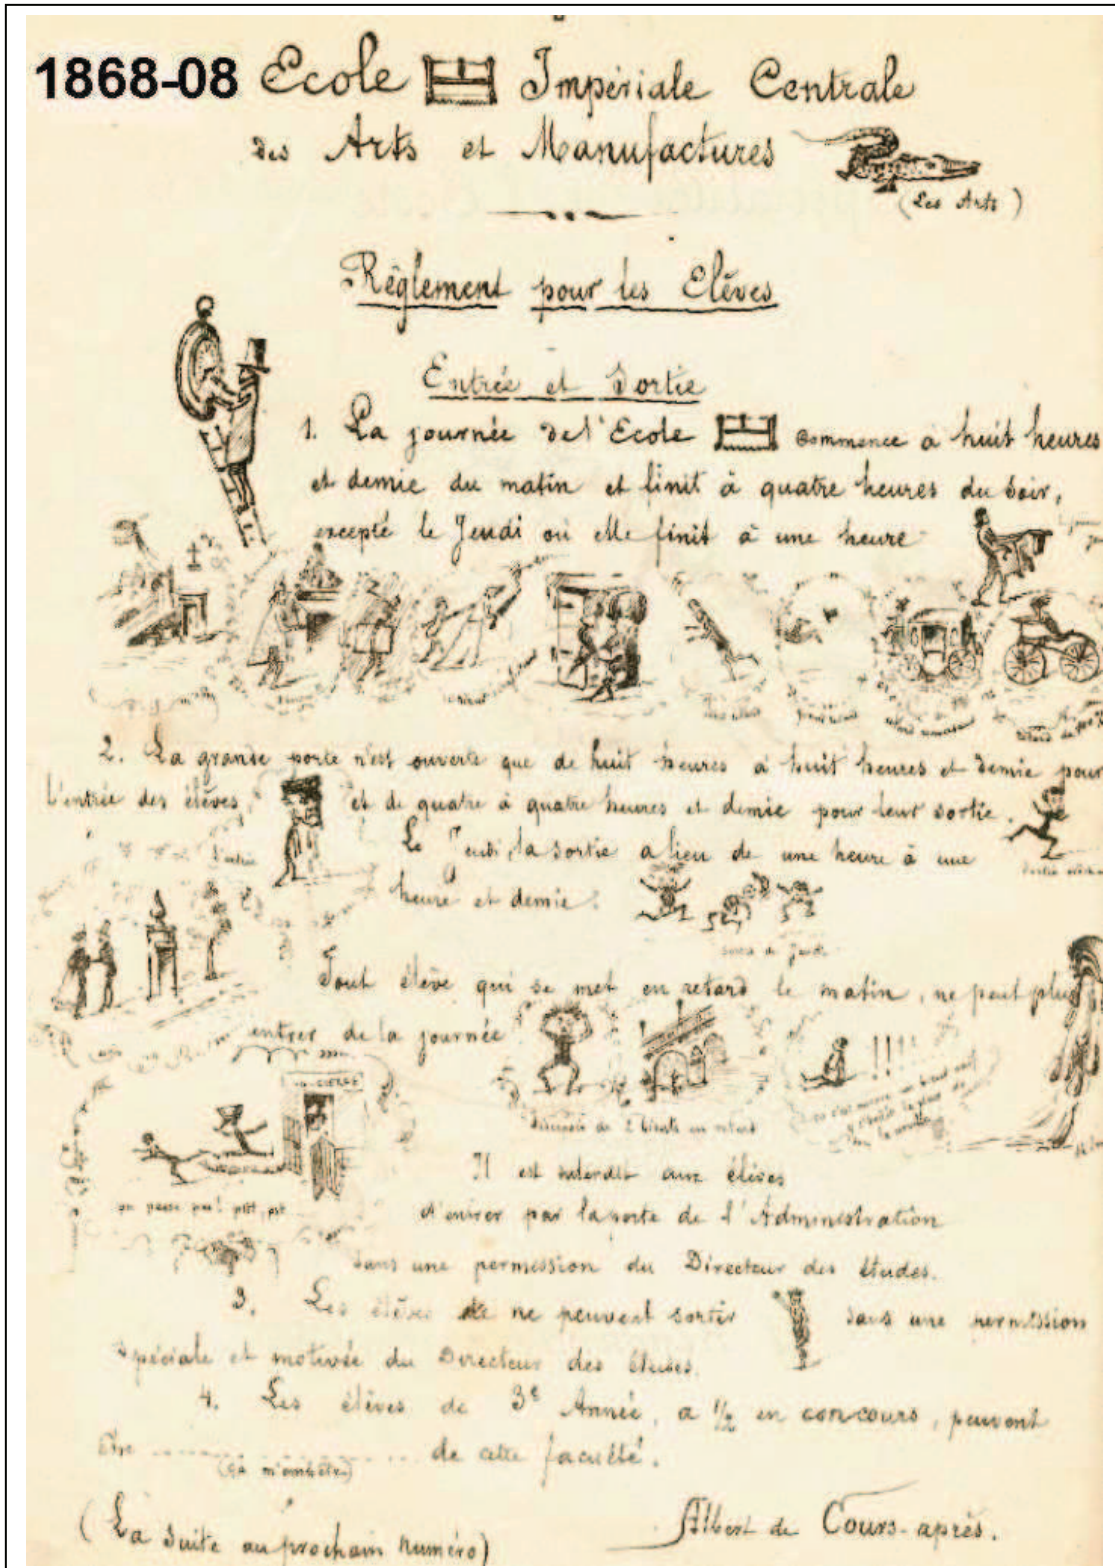 1868-08 Ecole Impériale Centrale
des Arts et Manufactures
(Les Arts)
Règlement pour les Elèves
Entrée et Sortie
1. La journée de l'Ecole commence à huit heures
et demie du matin et finit à quatre heures du soir,
excepté le Jeudi où elle finit à une heure
2. La grande porte n'est ouverte que de huit heures à huit heures et demie pour
l'entrée des élèves, et de quatre à quatre heures et demie pour leur sortie.
l'entrée
Le Jeudi, la sortie a lieu de une heure à une
heure et demie.
sortie du jeudi
Tout élève qui se met en retard le matin, ne peut plus
entrer de la journée
CIERGE
de 2 en retard
on passe pas! pstt, pst
Il est interdit aux élèves
d'entrer par la porte de l'Administration
sans une permission du Directeur des études.
3. Les élèves de ne peuvent sortir sans une permission
spéciale et motivée du Directeur des études.
4. Les élèves de 3e Année, a 1/2 en concours, peuvent
être .................... de cette faculté.
(ça m'embête)
(La suite au prochain numéro)
Albert de Cours-après.